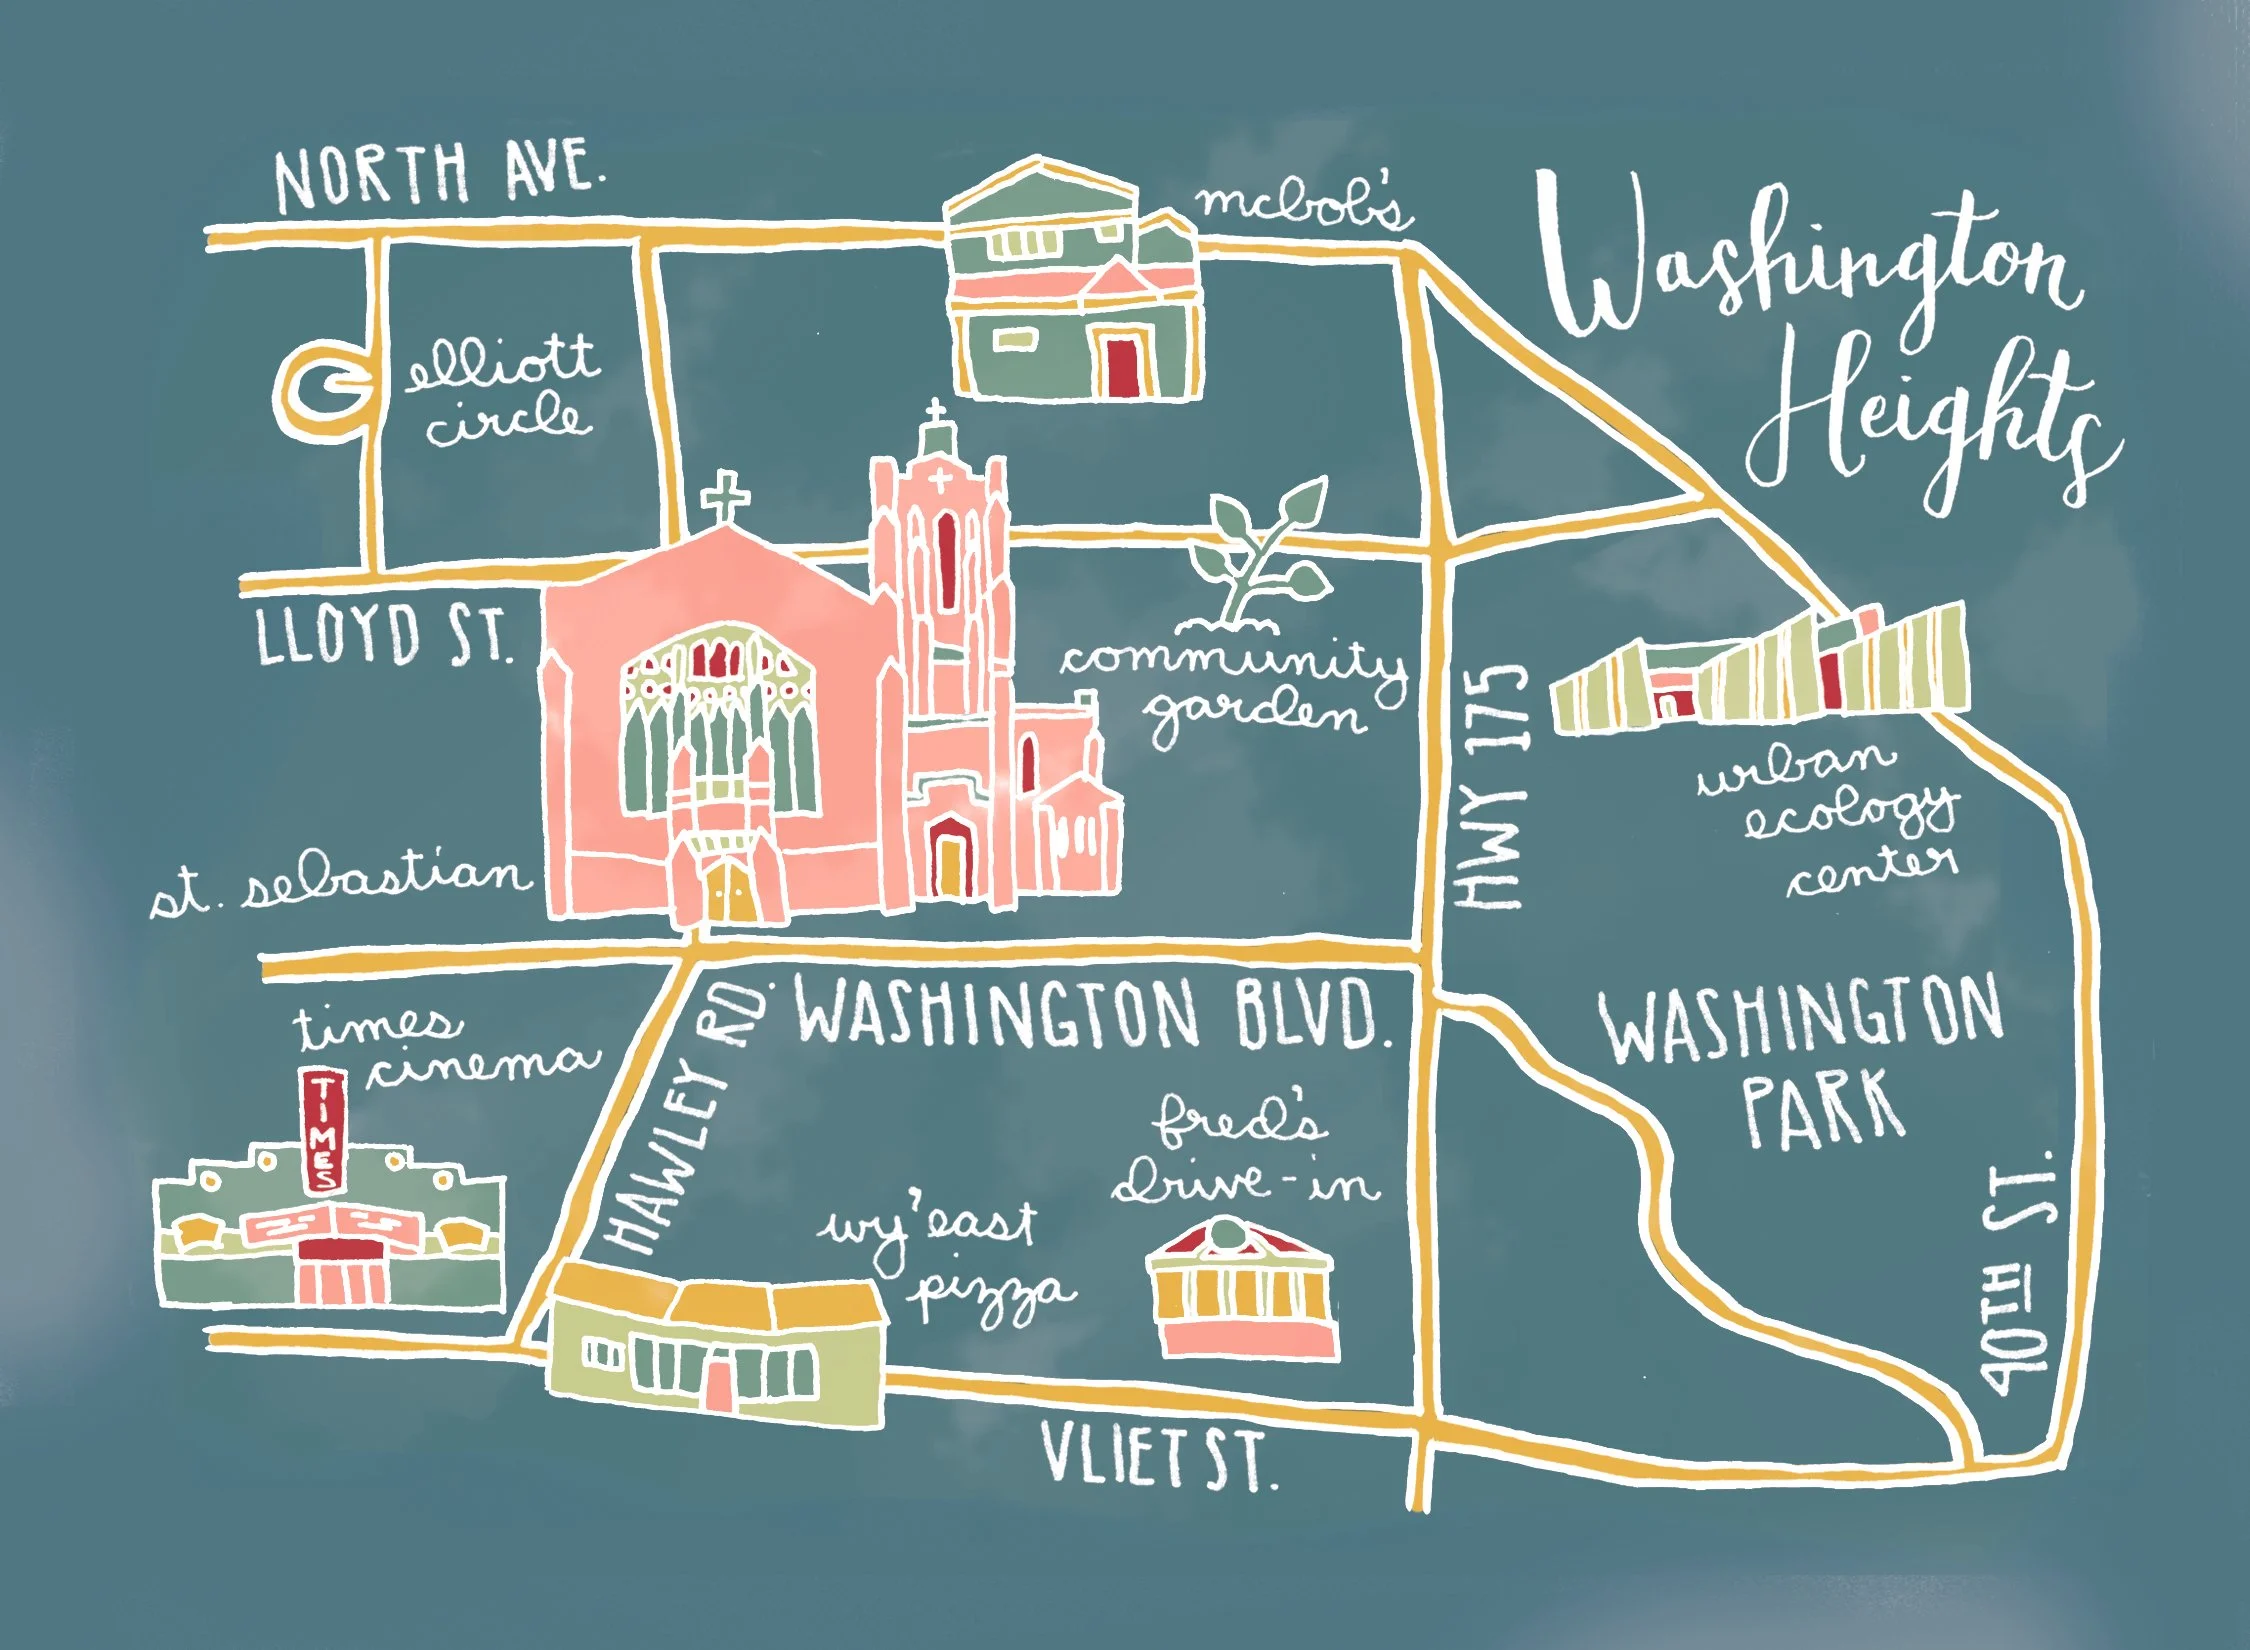 NORTH AVE.
mcbob's
Washington
Heights
elliott
circle
LLOYD ST.
community
garden
HWY 175
urban
ecology
center
st. sebastian
WASHINGTON BLVD.
HAWLEY RD.
WASHINGTON
PARK
times
cinema
TIMES
fred's
drive-in
wy'east
pizza
40TH ST.
VLIET ST.